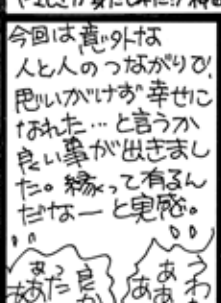 今回は意外な
人と人のつながりで、
思いがけず幸せに
なれた…と言うか
良い事が出きまし
た。縁って有るん
だなーと実感。